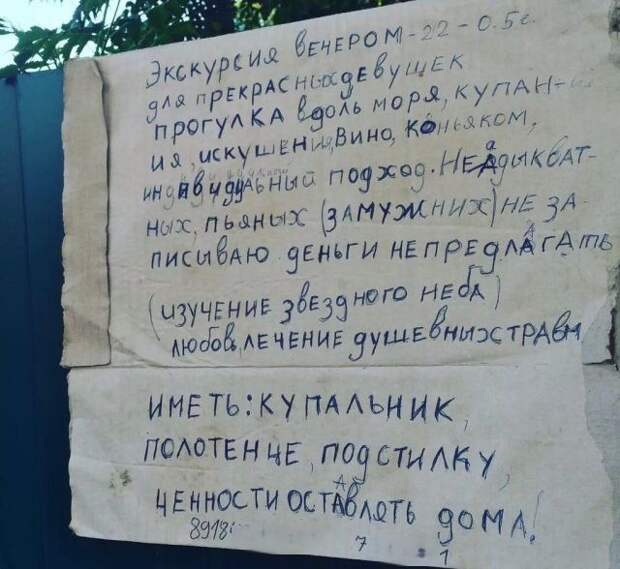 ЭКСКУРСИЯ ВЕЧЕРОМ-22-0.5г
ДЛЯ ПРЕКРАСНЫХ ДЕВУШЕК
ПРОГУЛКА ВДОЛЬ МОРЯ, КУПАН-
ИЯ, ИСКУШЕНИЯ, ВИНО, КОНЬЯКОМ,
ИНДИВИДУАЛЬНЫЙ ПОДХОД. НЕАДЫКВАТ-
НЫХ, ПЬЯНЫХ (ЗАМУЖНИХ) НЕ ЗА-
ПИСЫВАЮ ДЕНЬГИ НЕПРЕДЛАГАТЬ
(ИЗУЧЕНИЕ ЗВЕЗДНОГО НЕБА)
ЛЮБОВЬ, ЛЕЧЕНИЕ ДУШЕВНЫХ ТРАВМ
ИМЕТЬ: КУПАЛЬНИК,
ПОЛОТЕНЦЕ, ПОДСТИЛКУ,
ЦЕННОСТИ ОСТАВЛЯТЬ ДОМА!
8918
7 1